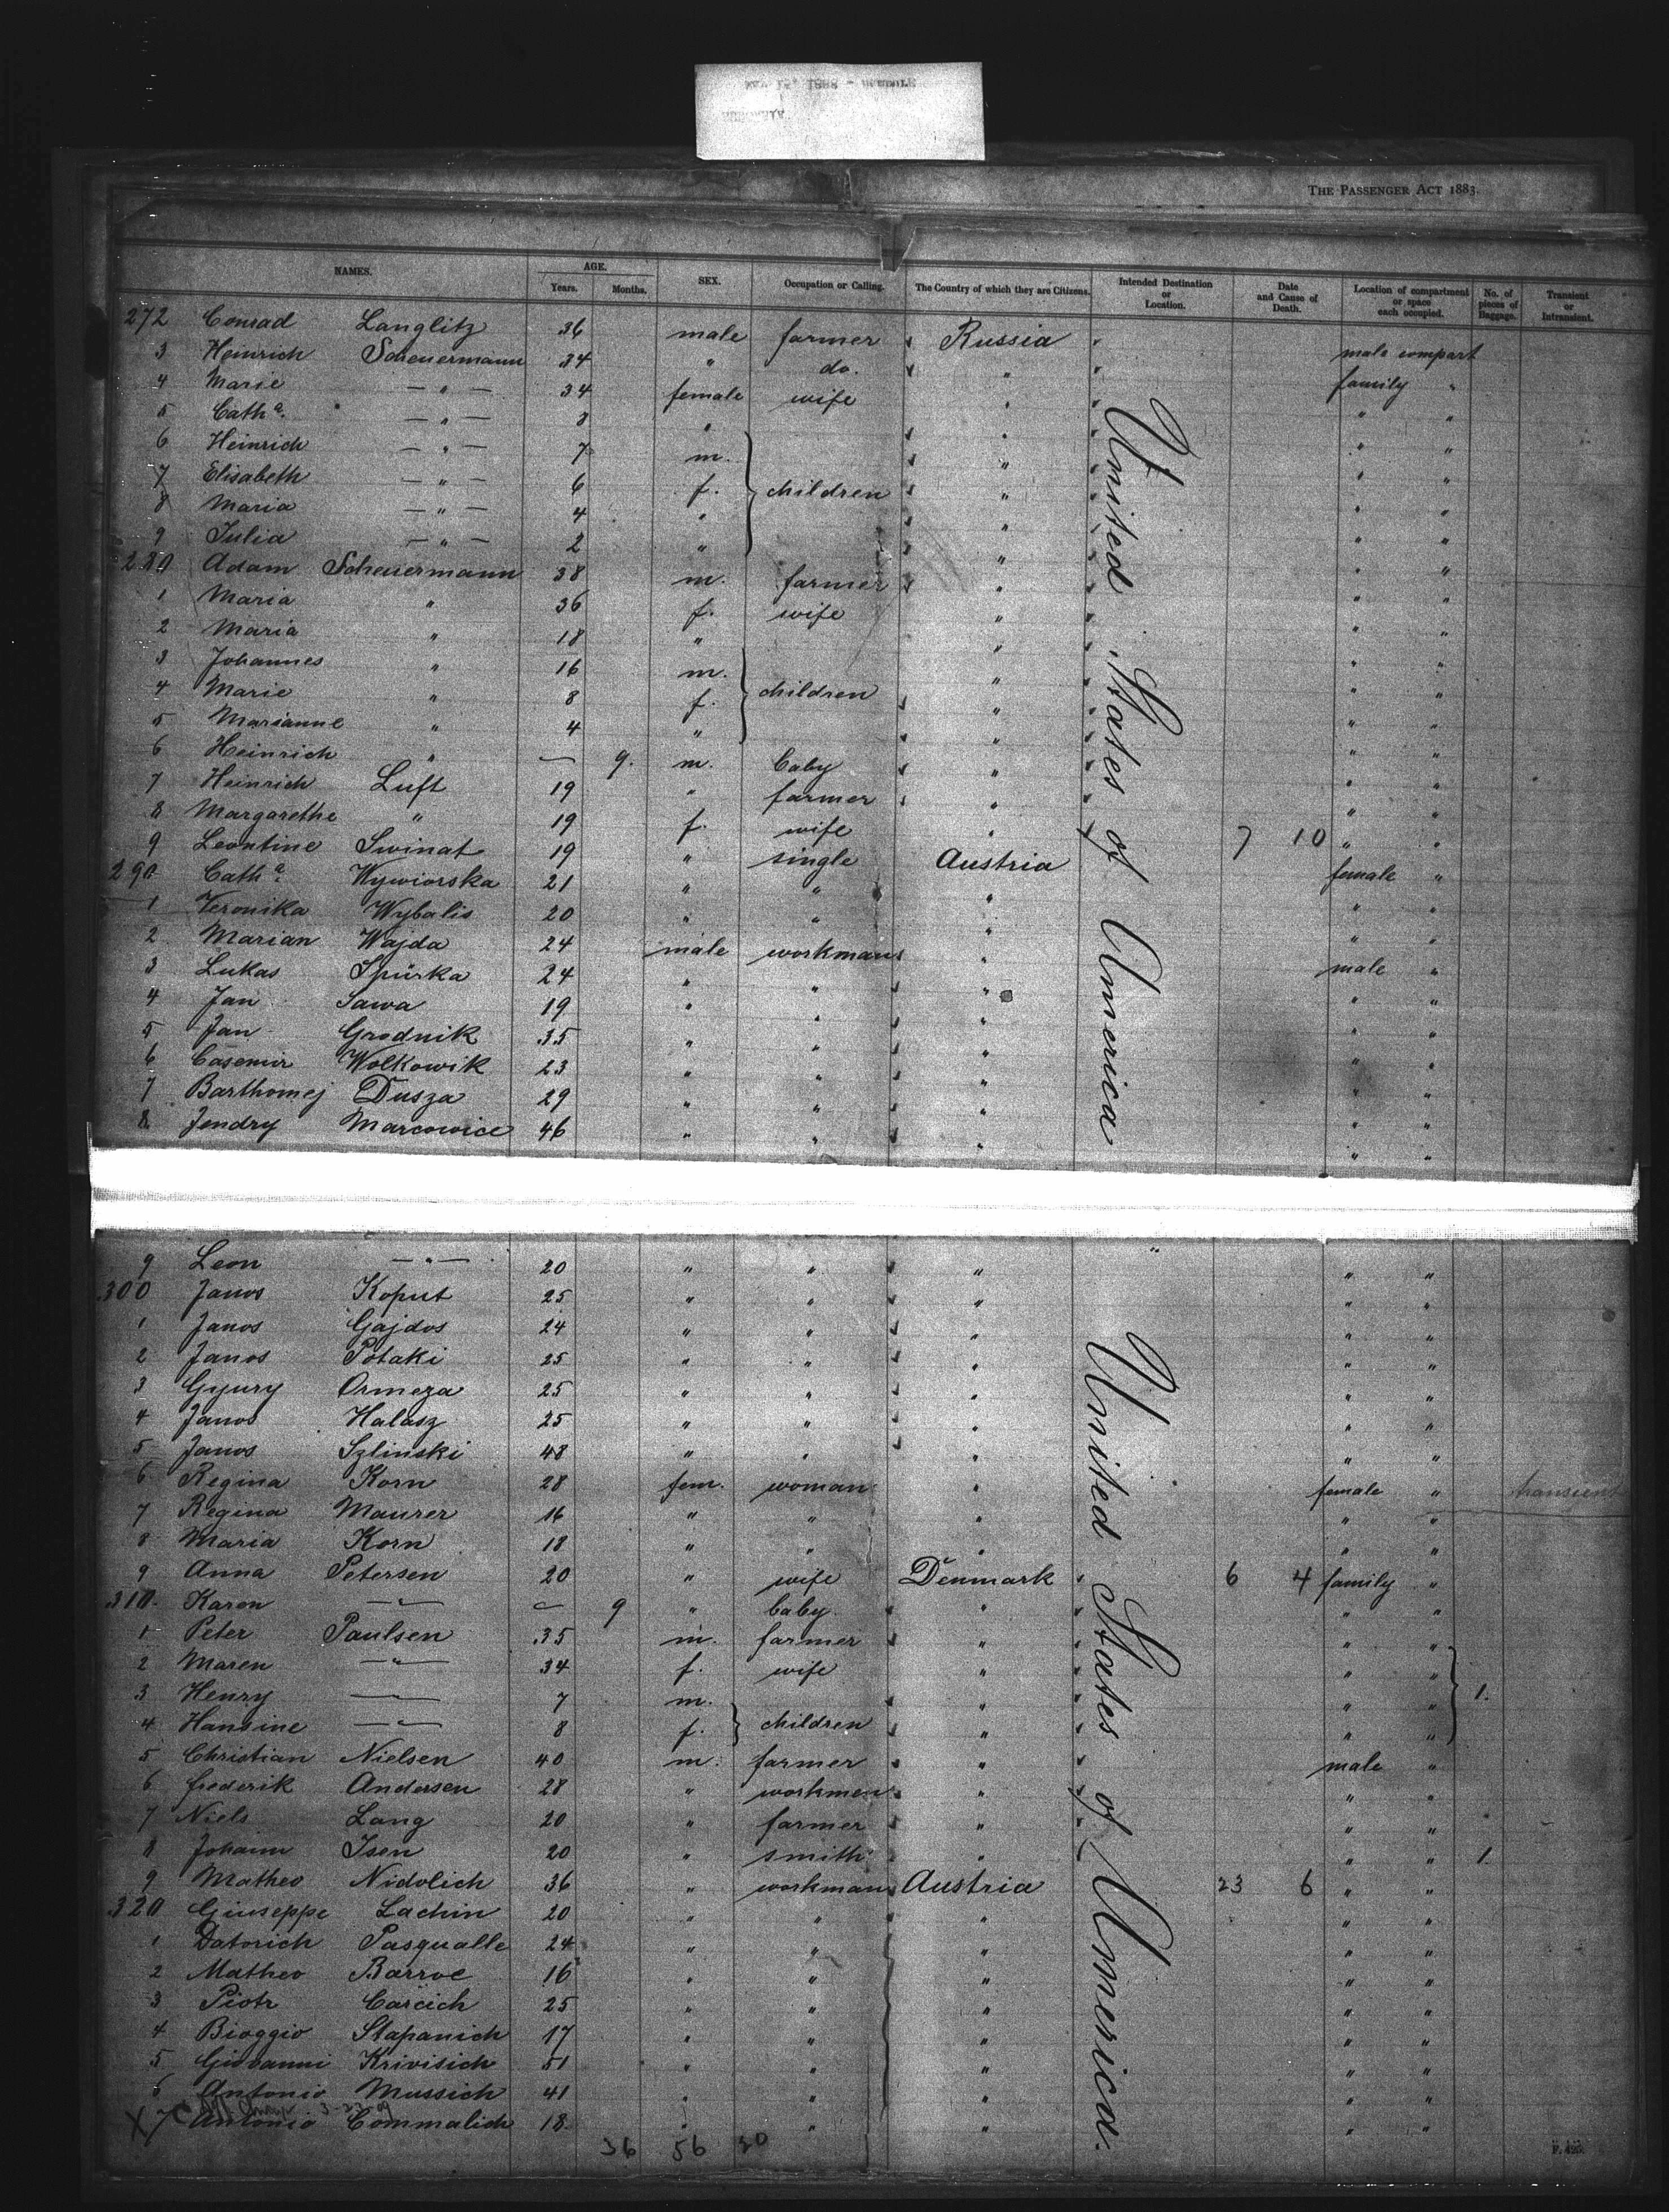 THE PASSENGER ACT 1883.
NAMES. AGE. SEX. Occupation or Calling. The Country of which they are Citizens. Intended Destination or Location. Date and Cause of Death. Location of compartment or space each occupied. No. of pieces of Baggage. Transient or Intransient.
Years. Months.
272 Conrad Langlitz 36 male farmer Russia male compart
3 Heinrich Scheuermann 34 " do. " family "
4 Marie — " — 34 female wife " " "
5 Cath a. — " — 8 " " " "
6 Heinrich — " — 7 m. " " "
7 Elisabeth — " — 6 f. children " " "
8 Maria — " — 4 " " " "
9 Julia — " — 2 " " " "
280 Adam Scheuermann 38 m. farmer " " "
1 Maria " 36 f. wife " " "
2 Maria " 18 " " " "
3 Johannes " 16 m. " " "
4 Marie " 8 f. children " " "
5 Marianne " 4 " " " "
6 Heinrich " — 9. m. baby " " "
7 Heinrich Luft 19 " farmer " " "
8 Margarethe " 19 f. wife " 7 10 " "
9 Leontine Swinat 19 " single Austria female "
290 Cath a. Wywiorska 21 " " " " "
1 Veronika Wybalis 20 " " " " "
2 Marian Wajda 24 male workman " male "
3 Lukas Spürka 24 " " " " "
4 Jan Sawa 19 " " " " "
5 Jan Grodnik 35 " " " " "
6 Casemir Wolkowik 23 " " " " "
7 Barthomej Dusza 29 " " " " "
8 Jendry Marcowice 46 " " " " "
United States of America
9 Leon — " — 20 " " " " "
300 Janos Koput 25 " " " " "
1 Janos Gajdos 24 " " " " "
2 Janos Potaki 25 " " " " "
3 Gyury Ormeza 25 " " " " "
4 Janos Halasz 25 " " " " "
5 Janos Szlinski 48 " " " " "
6 Regina Korn 28 fem. woman " female " transient
7 Regina Maurer 16 " " " " "
8 Maria Korn 18 " " " " "
9 Anna Petersen 20 " wife Denmark 6 4 family "
310. Karen — " — — 9 " baby " " "
1 Peter Paulsen 35 m. farmer " " "
2 Maren — " — 34 f. wife " " "
3 Henry — " — 7 m. " " " 1.
4 Hansine — " — 8 f. children " " "
5 Christian Nielsen 40 m. farmer " male "
6 Frederik Andersen 28 " workmen " " "
7 Niels Lang 20 " farmer " " "
8 Johann Isen 20 " smith " " " 1.
9 Matheo Nidolich 36 " workman Austria 23 6 " "
320 Giuseppe Lachin 20 " " " " "
1 Datorich Pasqualle 24 " " " " "
2 Matheo Barroe 16 " " " " "
3 Piotr Carcich 25 " " " " "
4 Bioggio Stapanich 17 " " " " "
5 Giovanni Krivisich 51 " " " " "
6 Antonio Mussich 41 " " " " "
X 7 Antonio Commalich 18 " " " " "
United States of America.
36 56 30
F. 425.